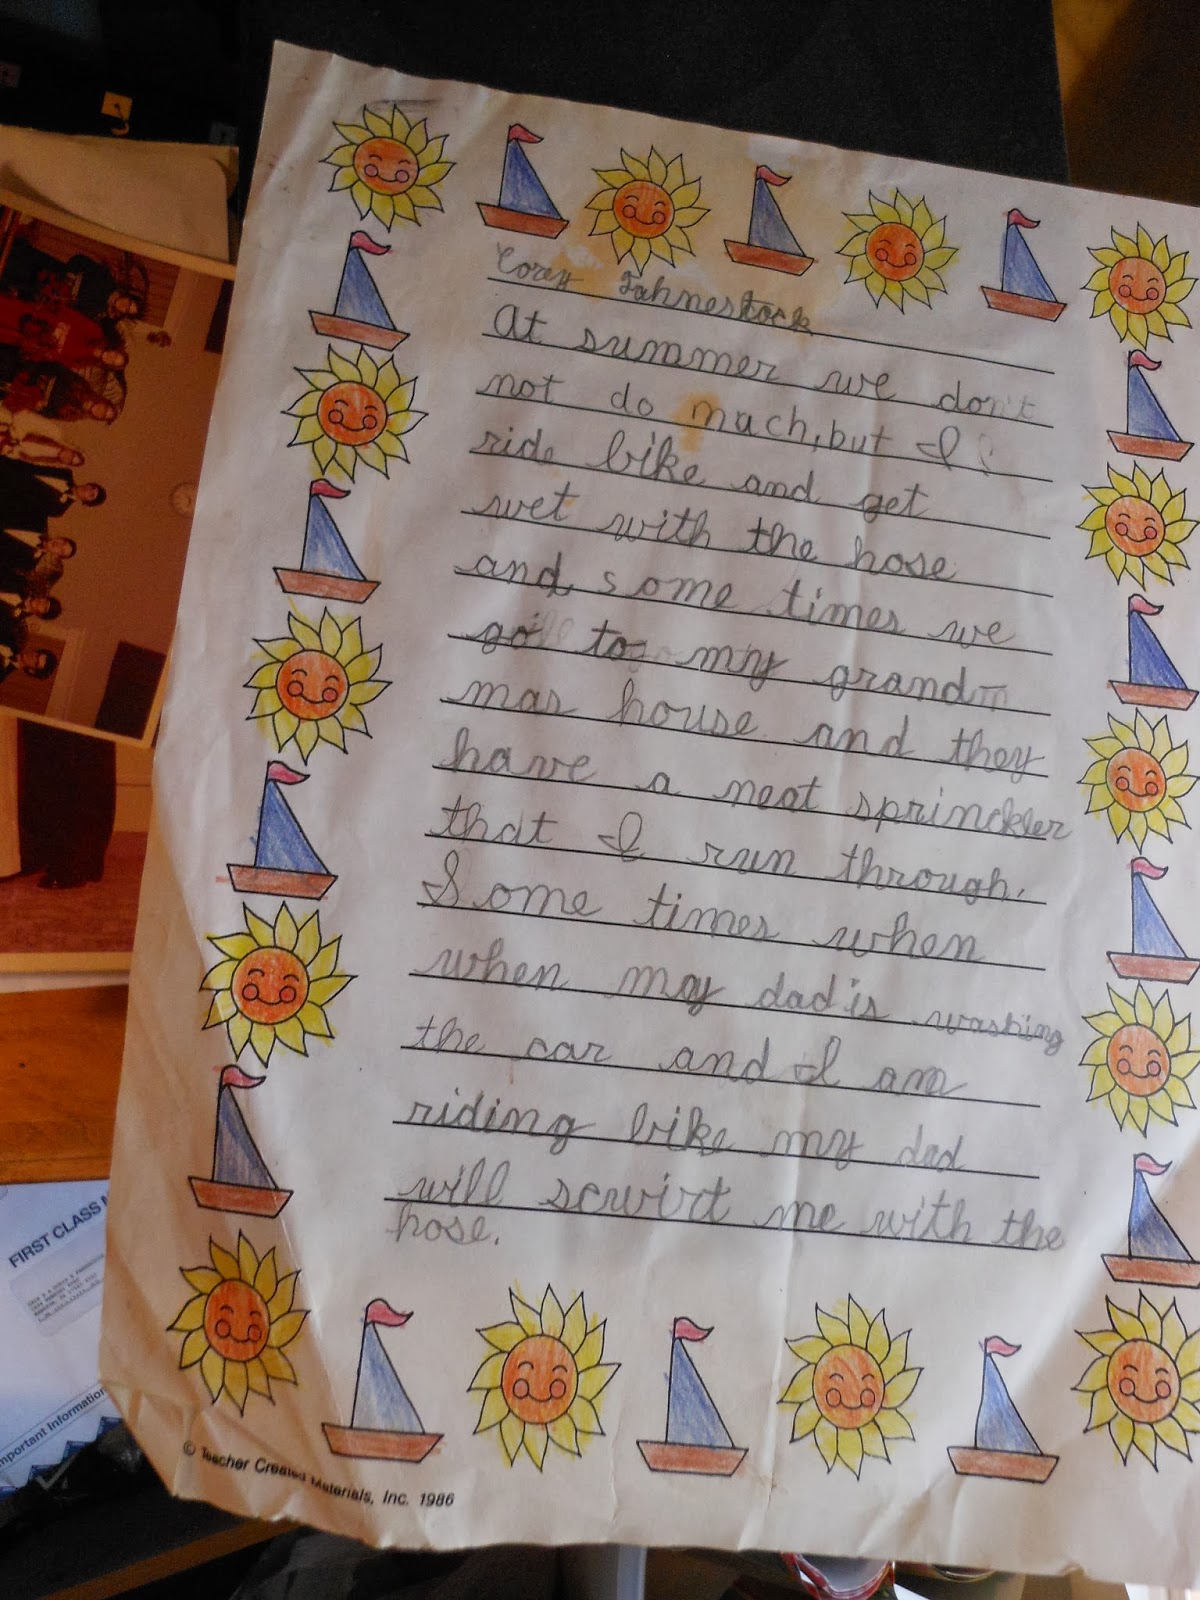 Corey Fahnestock
At summer we don't
not do mach, but I
ride bike and get
wet with the hose
and some times we
go to my grand
mas house and they
have a neat sprinckler
that I run through.
Some times when
when my dad is washing
the car and I am
riding bike my dad
will scwirt me with the
hose.
© Teacher Created Materials, Inc. 1986
FIRST CLASS M
Important Information